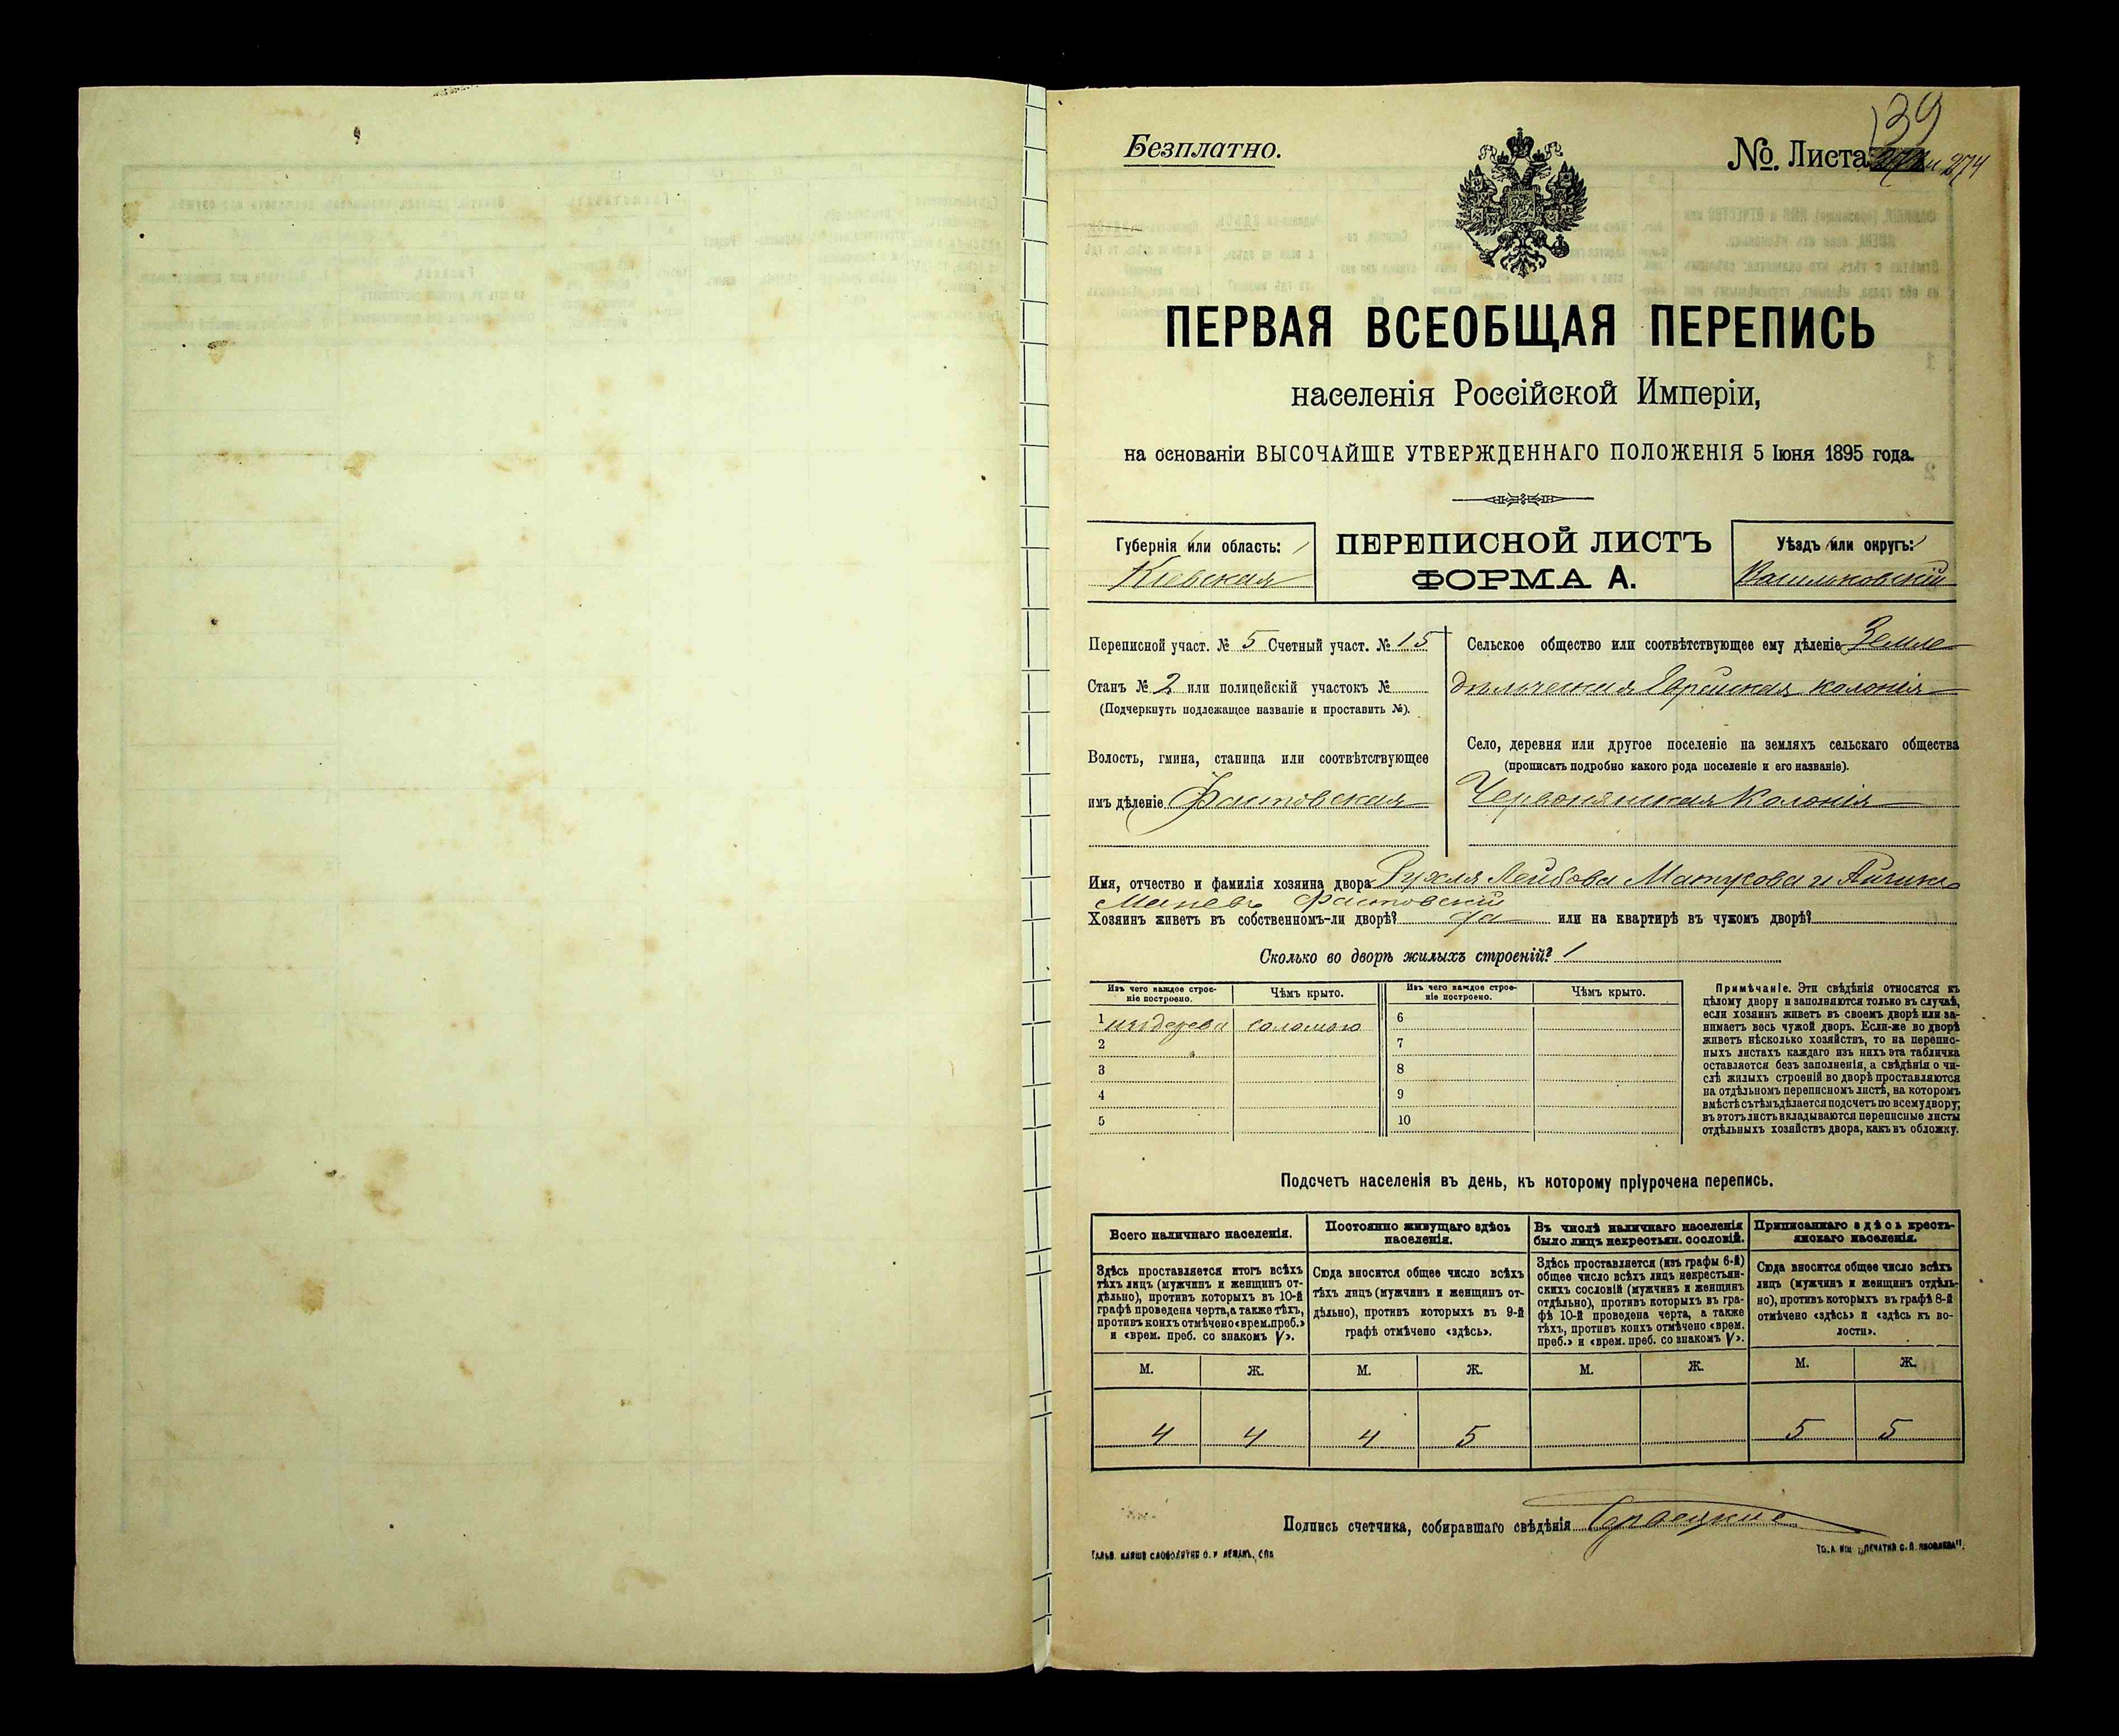 Безплатно.
№ Листа 274
139
ПЕРВАЯ ВСЕОБЩАЯ ПЕРЕПИСЬ
населенія Россійской Имперіи,
на основаніи ВЫСОЧАЙШЕ УТВЕРЖДЕННАГО ПОЛОЖЕНІЯ 5 Іюня 1895 года.
Губернія или область:
Кіевская
ПЕРЕПИСНОЙ ЛИСТЪ
ФОРМА А.
Уѣздъ или округъ:
Васильковскій
Переписной участ. № 5 Счетный участ. № 15
Станъ № 2 или полицейскій участокъ №
(Подчеркнуть подлежащее названіе и проставить №).
Волость, гмина, станица или соотвѣтствующее
имъ дѣленіе Фастовская
Сельское общество или соотвѣтствующее ему дѣленіе Земле
дѣльческая Еврейская колонія
Село, деревня или другое поселеніе на земляхъ сельскаго общества
(прописать подробно какого рода поселеніе и его названіе).
Червонянская Колонія
Имя, отчество и фамилія хозяина двора Рухля Лейбова Матусова и
Фастовскій
Хозяинъ живетъ въ собственномъ-ли дворѣ? да или на квартирѣ въ чужомъ дворѣ?
Сколько во дворѣ жилыхъ строеній? 1
Изъ чего каждое строе-
ніе построено.
Чѣмъ крыто.
Изъ чего каждое строе-
ніе построено.
Чѣмъ крыто.
1 изъ дерева соломою
2
3
4
5
6
7
8
9
10
Примѣчаніе. Эти свѣдѣнія относятся къ
цѣлому двору и заполняются только въ случаѣ,
если хозяинъ живетъ въ своемъ дворѣ или за-
нимаетъ весь чужой дворъ. Если-же во дворѣ
живетъ нѣсколько хозяйствъ, то на перепис-
ныхъ листахъ каждаго изъ нихъ эта табличка
оставляется безъ заполненія, а свѣдѣнія о чи-
слѣ жилыхъ строеній во дворѣ проставляются
на отдѣльномъ переписномъ листѣ, на которомъ
вмѣстѣ съ тѣмъ дѣлается подсчетъ по всему двору;
въ этотъ листъ вкладываются переписные листы
отдѣльныхъ хозяйствъ двора, какъ въ обложку.
Подсчетъ населенія въ день, къ которому пріурочена перепись.
Всего наличнаго населенія.
Здѣсь проставляется итогъ всѣхъ
тѣхъ лицъ (мужчинъ и женщинъ от-
дѣльно), противъ которыхъ въ 10-й
графѣ проведена черта, а также тѣхъ,
противъ коихъ отмѣчено «врем. преб.»
и «врем. преб. со знакомъ V».
Постоянно живущаго здѣсь
населенія.
Сюда вносится общее число всѣхъ
тѣхъ лицъ (мужчинъ и женщинъ от-
дѣльно), противъ которыхъ въ 9-й
графѣ отмѣчено «здѣсь».
Въ числѣ наличнаго населенія
было лицъ некрестьян. сословій.
Здѣсь проставляется (изъ графы 6-й)
общее число всѣхъ лицъ некрестьян-
скихъ сословій (мужчинъ и женщинъ
отдѣльно), противъ которыхъ въ гра-
фѣ 10-й проведена черта, а также
тѣхъ, противъ коихъ отмѣчено «врем.
преб.» и «врем. преб. со знакомъ V».
Приписаннаго здѣсь кресть-
янскаго населенія.
Сюда вносится общее число всѣхъ
лицъ (мужчинъ и женщинъ отдѣль-
но), противъ которыхъ въ графѣ 8-й
отмѣчено «здѣсь» и «здѣсь къ во-
лости».
М. Ж. М. Ж. М. Ж. М. Ж.
4 4 4 5 5 5
Подпись счетчика, собиравшаго свѣдѣнія